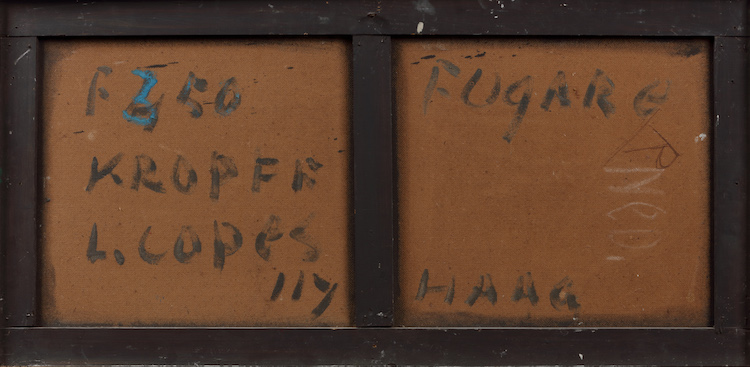 F 350
KROPFF
L. COPES
117
FUGARE
HAAG